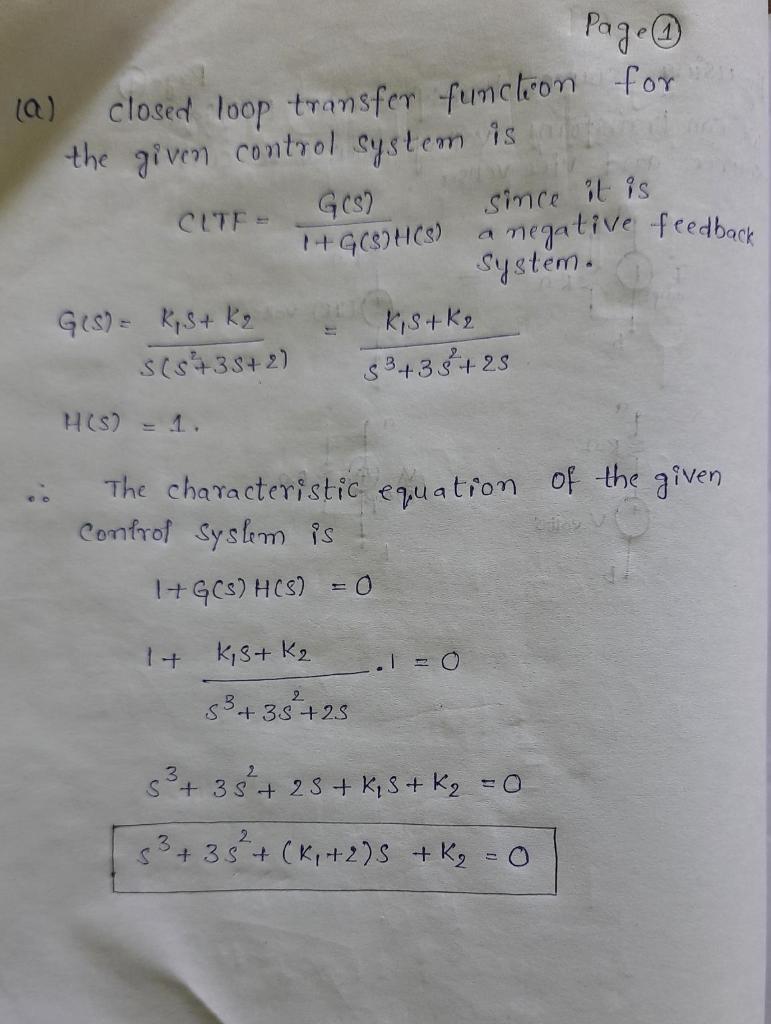 Page ①
(a) closed loop transfer function for
the given control system is
CLTF = G(s) / 1+G(s)H(s) since it is
a negative feedback
system.
G(s) = K₁s+K₂ / s(s²+3s+2) = K₁s+K₂ / s³+3s²+2s
H(s) = 1.
∴ The characteristic equation of the given
Control System is
1+G(s)H(s) = 0
1+ K₁s+K₂ / s³+3s²+2s .1 = 0
s³+3s²+2s+K₁s+K₂ = 0
s³+3s²+(K₁+2)s +K₂ = 0